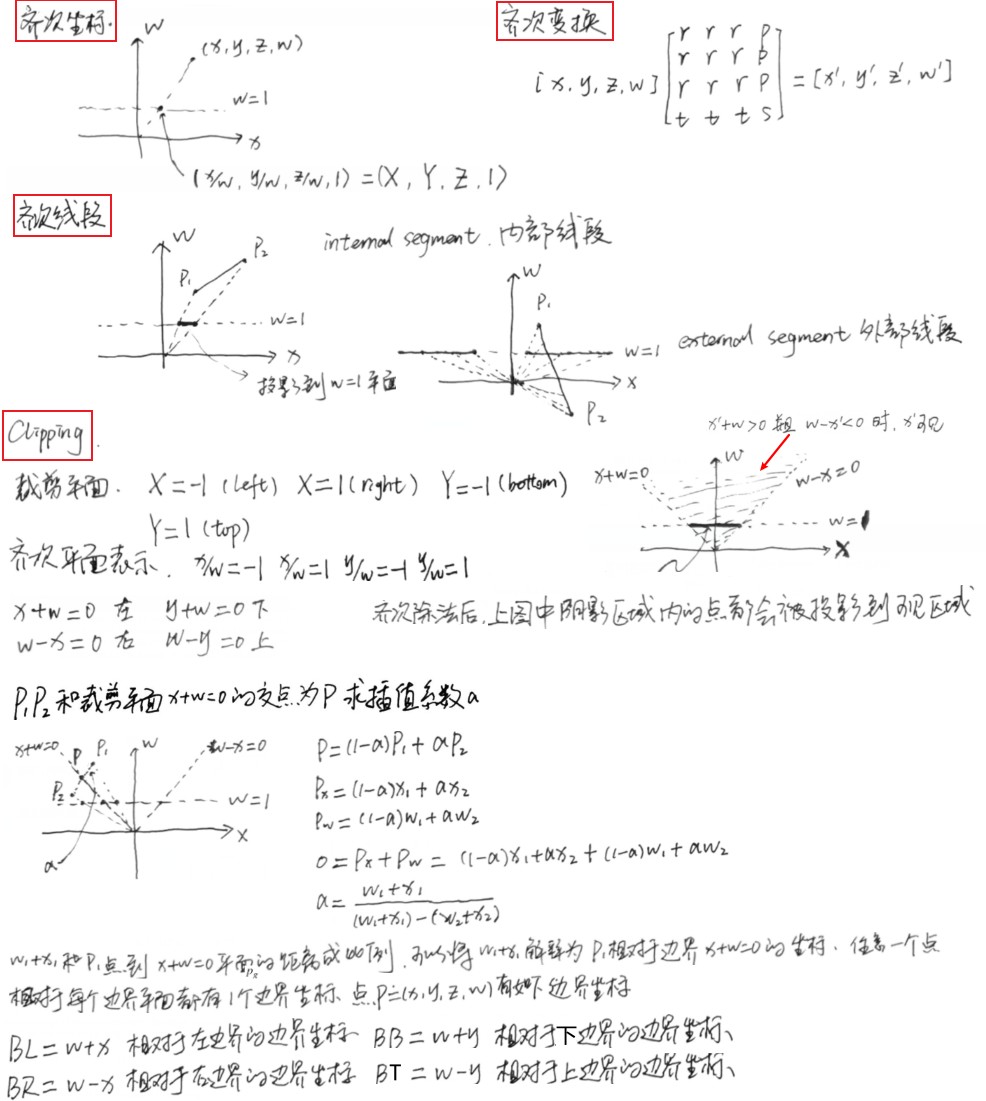 齐次坐标.
齐次变换
W
(x, y, z, w)
w=1
x
(x/w, y/w, z/w, 1) = (X, Y, Z, 1)
[x, y, z, w] [r r r p
r r r p
r r r p
t t t s] = [x', y', z', w']
齐次线段
internal segment. 内部线段
W
P₁
P₂
w=1
x
投影到 w=1 平面
W
P₁
w=1
X
P₂
external segment 外部线段
Clipping.
x'+w>0 且 w-x'<0 时, x'可见
裁剪平面. X=-1 (left) X=1 (right) Y=-1 (bottom)
Y=1 (top)
x+w=0
W
w-x=0
w=1
X
齐次平面表示. x/w=-1 x/w=1 y/w=-1 y/w=1
x+w=0 左 y+w=0 下
w-x=0 右 w-y=0 上
齐次除法后, 上图中阴影区域内的点都会被投影到可见区域
P₁P₂和裁剪平面x+w=0的交点为P 求插值系数a
x+w=0
P
P₁
W
w-x=0
P₂
w=1
X
a
P=(1-a)P₁+aP₂
Px=(1-a)x₁+ax₂
Pw=(1-a)w₁+aw₂
0=Px+Pw=(1-a)x₁+ax₂+(1-a)w₁+aw₂
a=(w₁+x₁)/((w₁+x₁)-(w₂+x₂))
w₁+x₁和P₁点到x+w=0平面的距离成比例, 可以将w₁+x₁解释为P₁相对于边界x+w=0的坐标. 任意一个点
相对于每个边界平面都有1个边界坐标. 点P=(x,y,z,w)有如下边界坐标
BL=w+x 相对于左边界的边界坐标 BB=w+y 相对于下边界的边界坐标、
BR=w-x 相对于右边界的边界坐标 BT=w-y 相对于上边界的边界坐标、